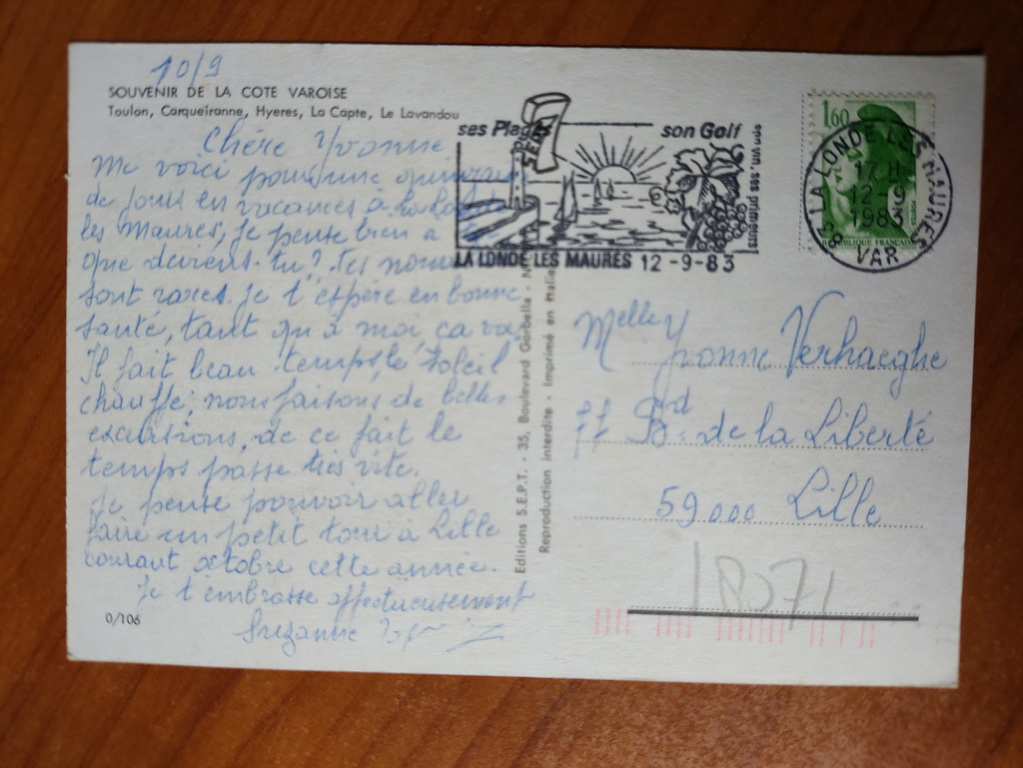 10/9
SOUVENIR DE LA COTE VAROISE
Toulon, Carqueiranne, Hyeres, La Capte, Le Lavandou
Chère Yvonne
Me voici pour une quinzaine
de jours en vacances à la Londe
les Maures, je pense bien à toi
que deviens-tu? Tes nouvelles
sont rares. Je t'espère en bonne
santé, tant qu'à moi, ça va.
Il fait beau temps, le Soleil
chauffe, nous faisons de belles
excursions, de ce fait le
temps passe très vite.
Je pense pouvoir aller
faire un petit tour à Lille
courant octobre cette année.
Je t'embrasse affectueusement
Suzanne
0/106
Editions S.E.P.T. - 35, Boulevard Gorbella - N
Reproduction interdite - Imprimé en Italie
ses Plages
son Golf
son vin, ses primeurs
LA LONDE LES MAURES 12-9-83
1,60
REPUBLIQUE FRANCAISE
83 LA LONDE-LES-MAURES
17 H
12-9
1983
VAR
Melle Yvonne Verhaeghe
77 Bd. de la Liberté
59000 Lille
18071